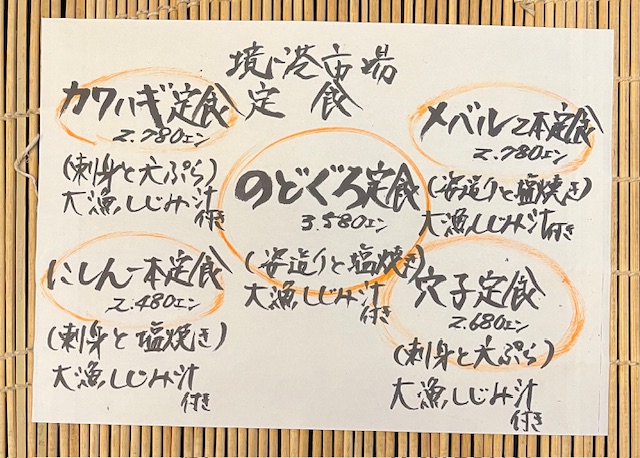 境港市場
定食
カワハギ定食
2.780エン
(刺身と天ぷら)
大漁しじみ汁
付き
メバル2本定食
2.780エン
(姿造りと塩焼き)
大漁しじみ汁付き
のどぐろ定食
3.580エン
(姿造りと塩焼き)
大漁しじみ汁
付き
にしん一本定食
2.480エン
(刺身と塩焼き)
大漁しじみ汁
付き
穴子定食
2.680エン
(刺身と天ぷら)
大漁しじみ汁
付き